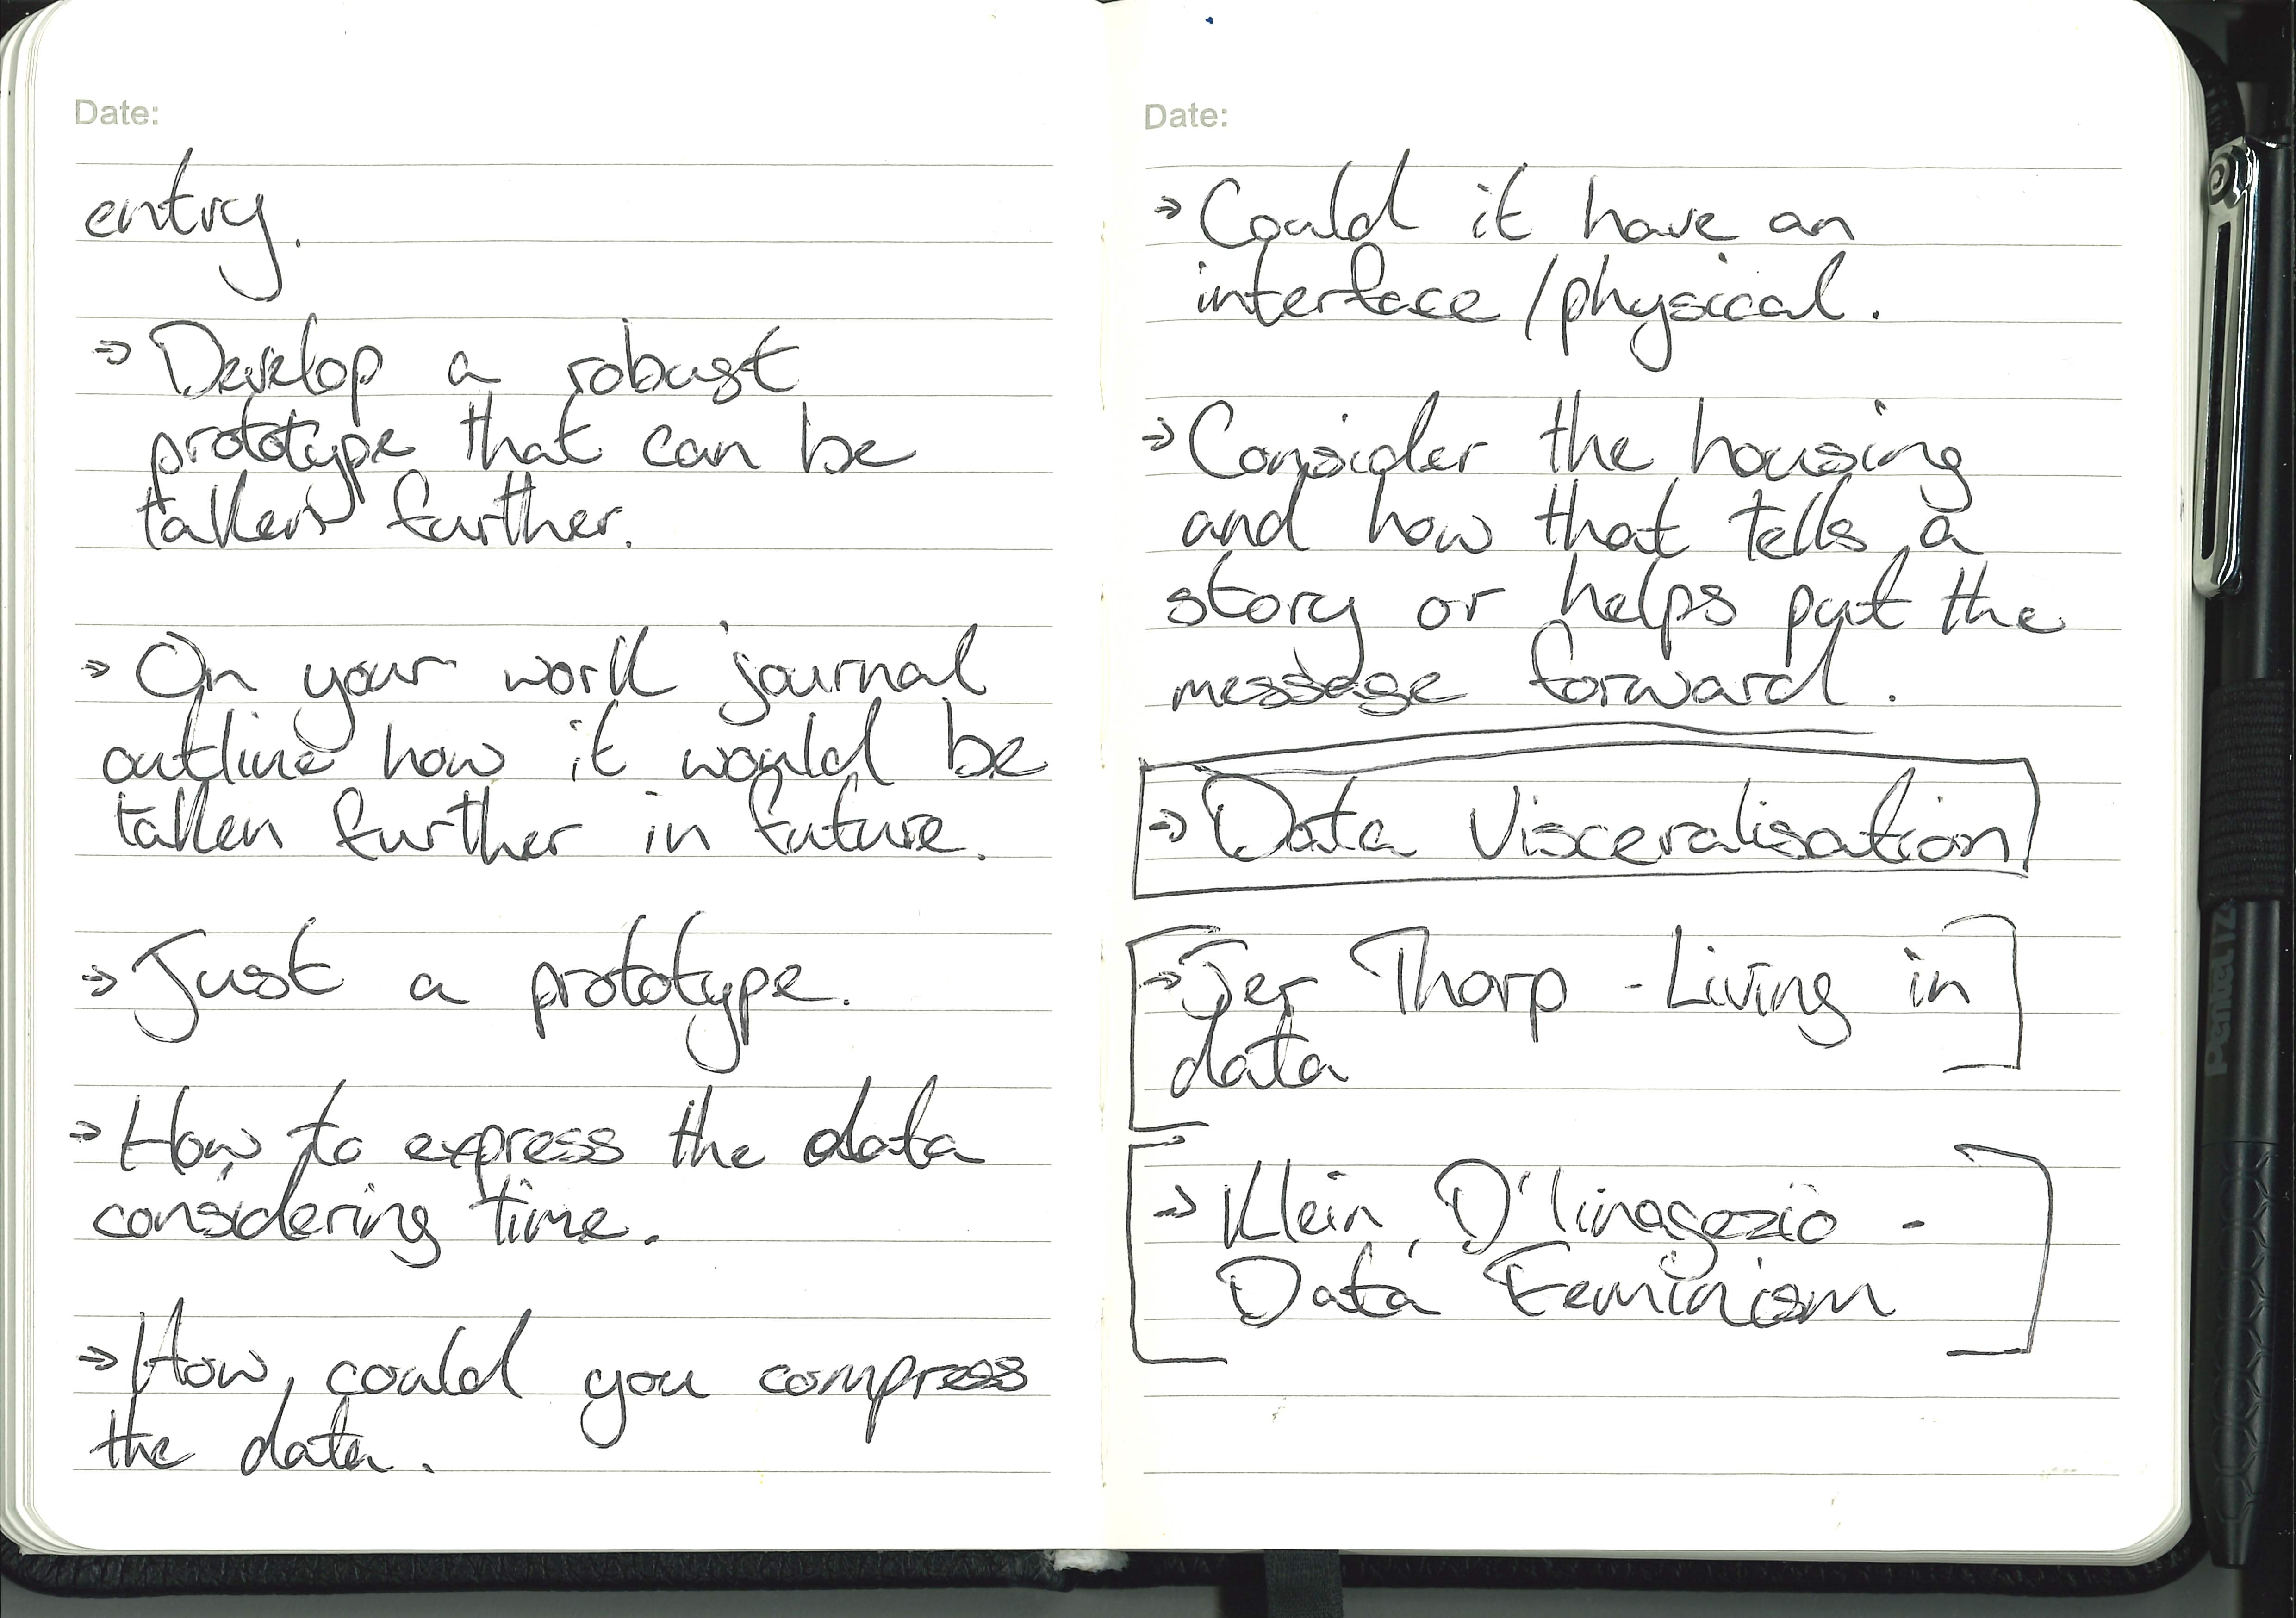 Date:
entry.
→ Develop a robust
prototype that can be
taken further.
→ On your work journal
outline how it would be
taken further in future.
→ Just a prototype.
→ How to express the data
considering time.
→ How could you compress
the data.
Date:
→ Could it have an
interface / physical.
→ Consider the housing
and how that tells a
story or helps put the
message forward.
→ Data Visceralisation
→ Jer Thorp - Living in
data
→ Klein, D'linagezio -
Data Feminism
Pentel